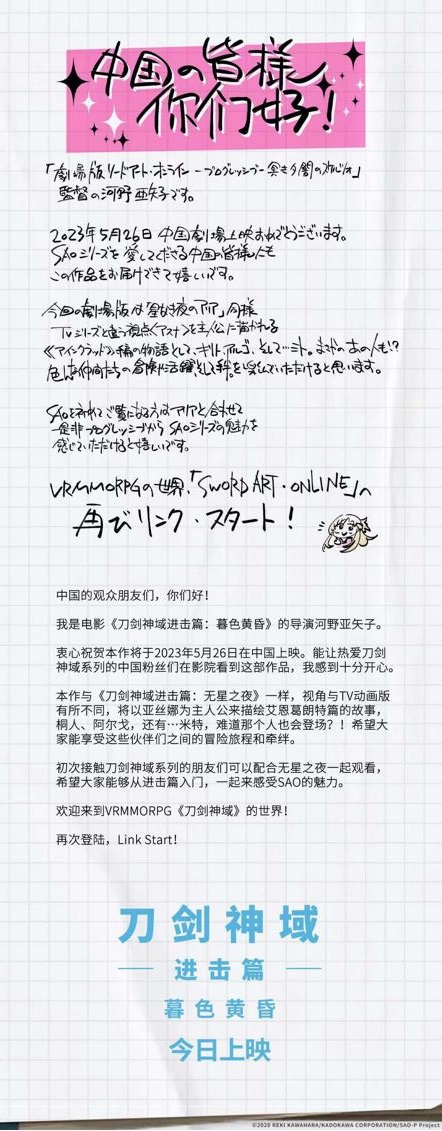 中国の皆様
你们好!
「劇場版ソードアート・オンライン -プログレッシブ- 冥き夕闇のスケルツォ」
監督の河野亜矢子です。
2023年5月26日 中国劇場上映おめでとうございます。
SAOシリーズを愛してくださる中国の皆様にも
この作品をお届けできて嬉しいです。
今回の劇場版は「星なき夜のアリア」同様
TVシリーズと違う視点、アスナを主人公に描かれる
《アインクラッド》編の物語として、キリト、アルゴ、そして…ミト。まさかのあの人も!?
色んな仲間たちの冒険や活躍、そして絆を楽しんでいただけると思います。
SAOを初めてご覧になる方はアリアと合わせて
是非プログレッシブからSAOシリーズの魅力を
感じていただけると嬉しいです。
VRMMORPGの世界、「SWORD ART・ONLINE」へ
再びリンク・スタート!
中国的观众朋友们，你们好！
我是电影《刀剑神域进击篇：暮色黄昏》的导演河野亚矢子。
衷心祝贺本作将于2023年5月26日在中国上映。能让热爱刀剑
神域系列的中国粉丝们在影院看到这部作品，我感到十分开心。
本作与《刀剑神域进击篇：无星之夜》一样，视角与TV动画版
有所不同，将以亚丝娜为主人公来描绘艾恩葛朗特篇的故事，
桐人、阿尔戈，还有…米特，难道那个人也会登场？！希望大
家能享受这些伙伴们之间的冒险旅程和牵绊。
初次接触刀剑神域系列的朋友们可以配合无星之夜一起观看，
希望大家能够从进击篇入门，一起来感受SAO的魅力。
欢迎来到VRMMORPG《刀剑神域》的世界！
再次登陆，Link Start！
刀剑神域
进击篇
暮色黄昏
今日上映
©2020 REKI KAWAHARA/KADOKAWA CORPORATION/SAO-P Project